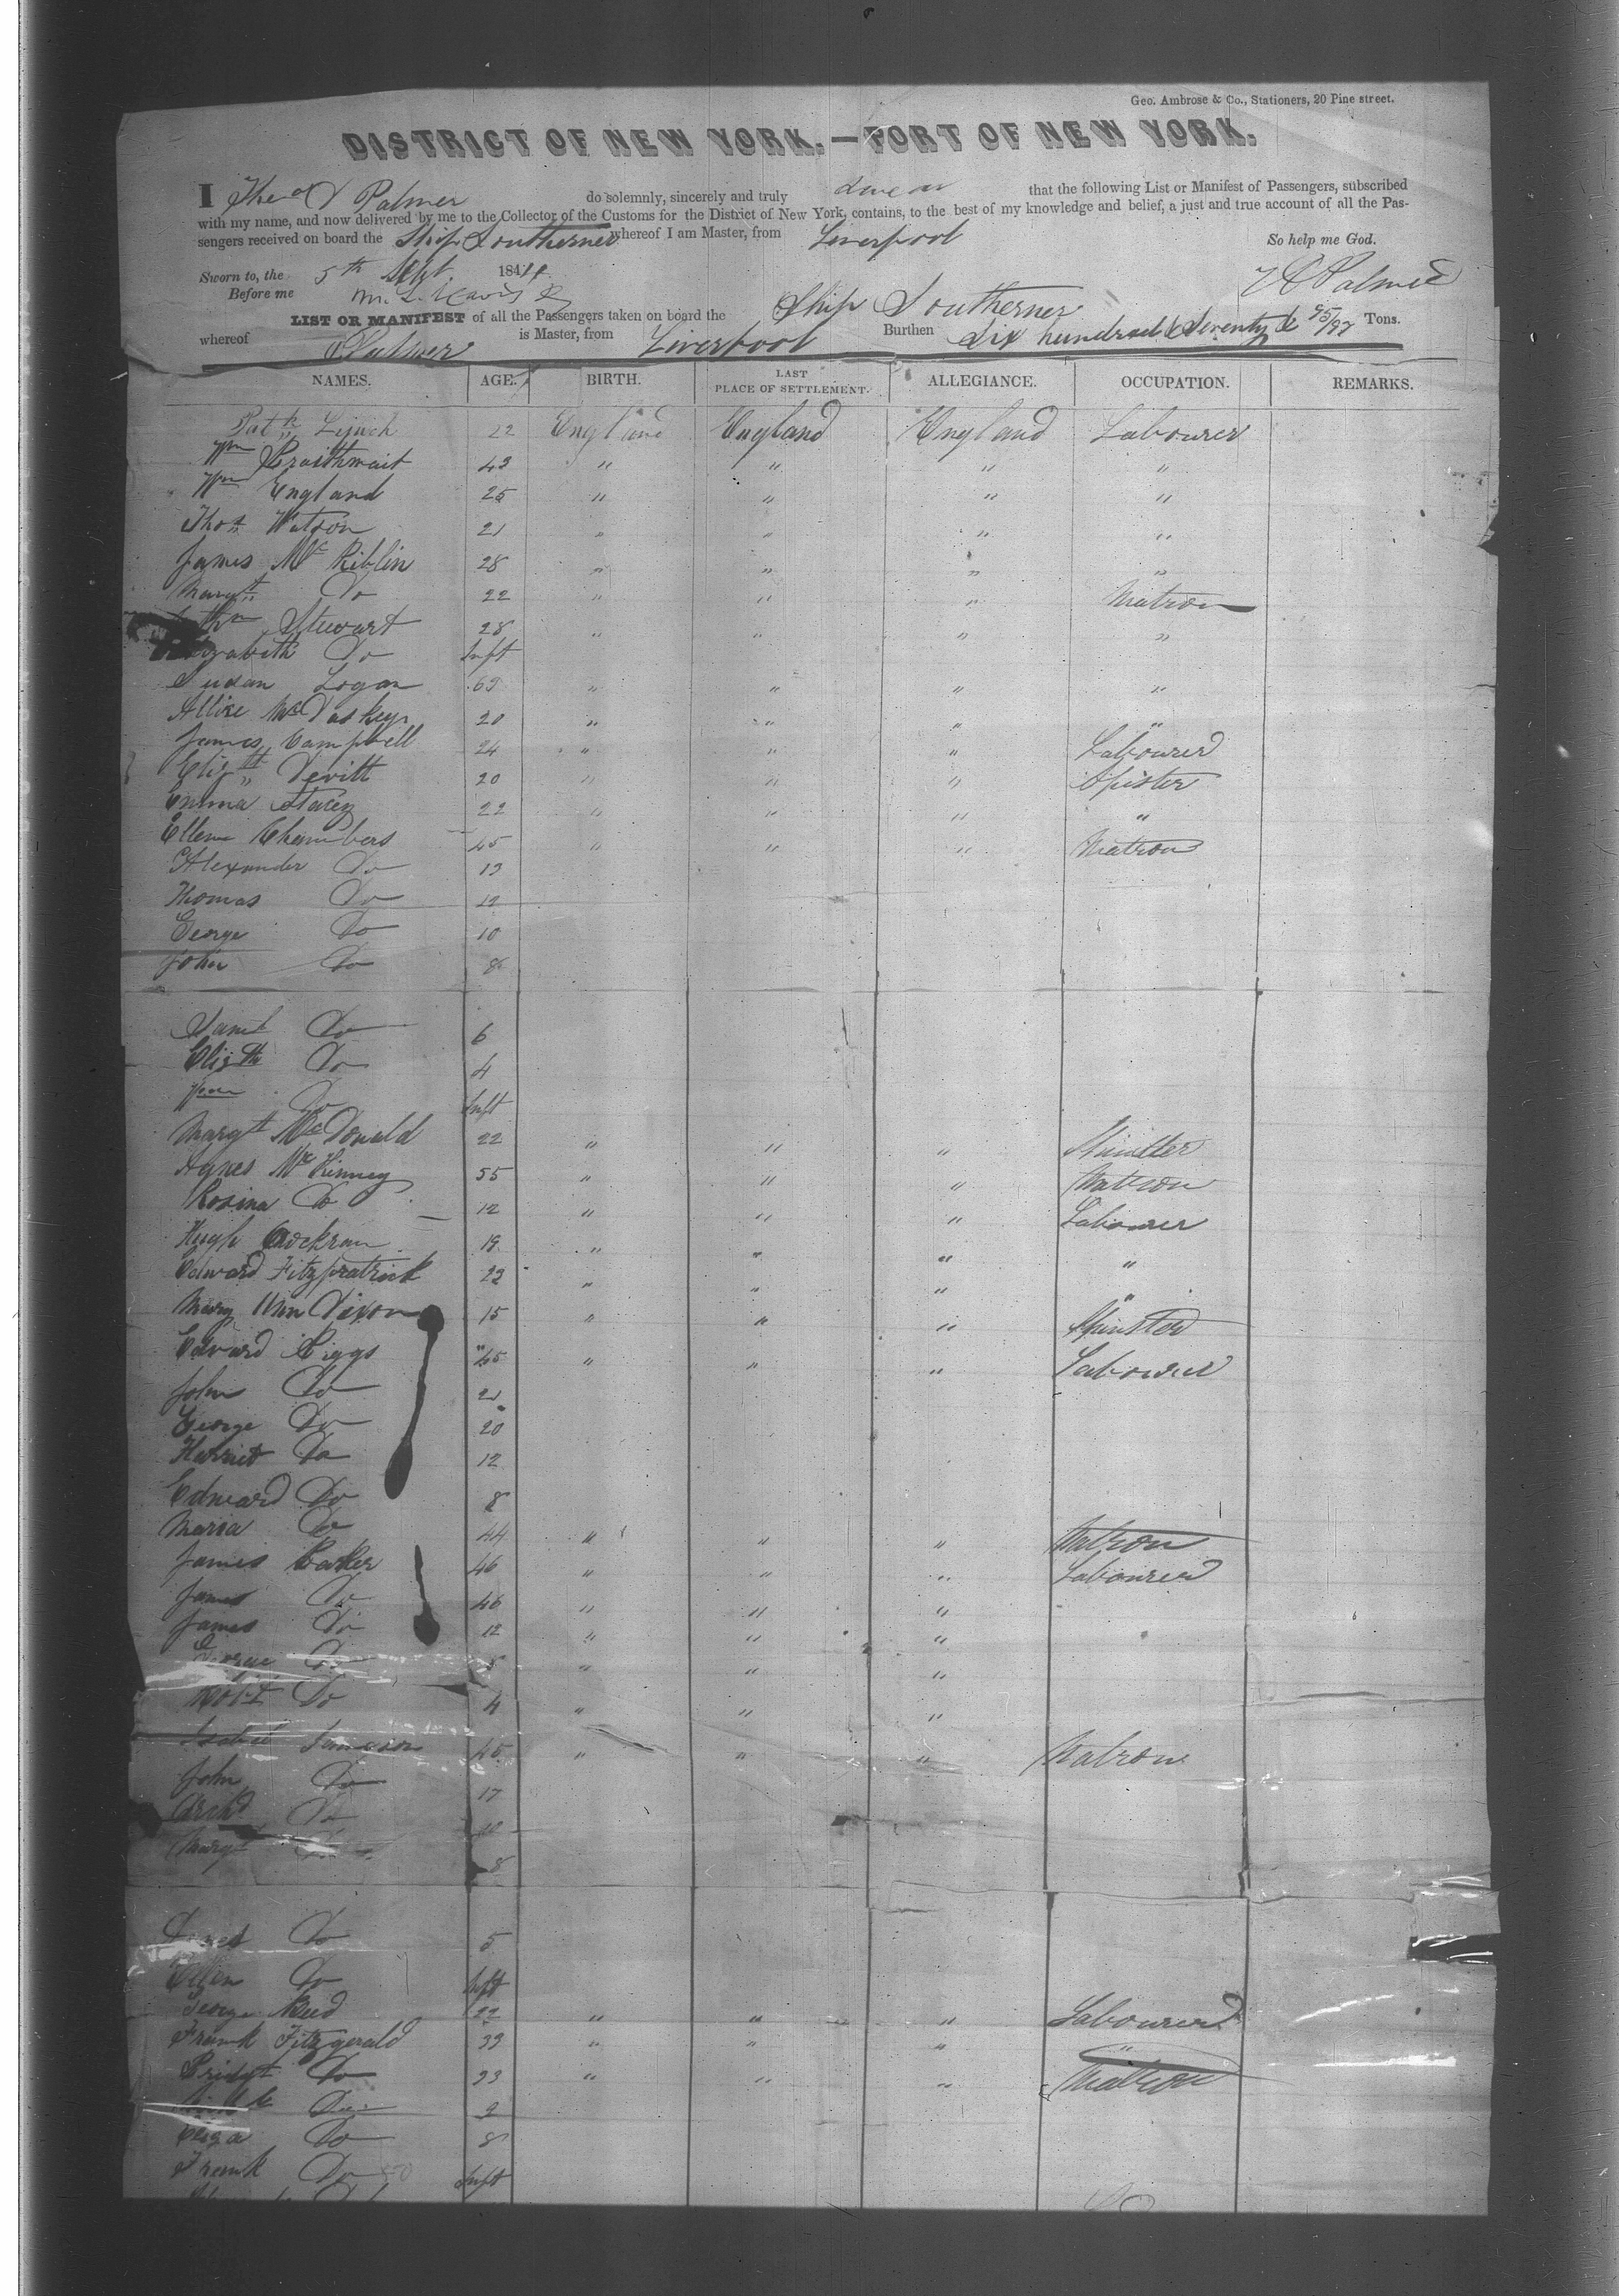 Geo. Ambrose & Co., Stationers, 20 Pine street.
DISTRICT OF NEW YORK.—PORT OF NEW YORK.
I Theo D Palmer do solemnly, sincerely and truly swear that the following List or Manifest of Passengers, subscribed
with my name, and now delivered by me to the Collector of the Customs for the District of New York, contains, to the best of my knowledge and belief, a just and true account of all the Pas-
sengers received on board the Ship Southerner whereof I am Master, from Liverpool So help me God.
Sworn to, the 5th Sept. 1844 Palmer
Before me
LIST OR MANIFEST of all the Passengers taken on board the Ship Southerner
whereof Palmer is Master, from Liverpool Burthen Six hundred & Seventy & 75/92 Tons.
NAMES. AGE. BIRTH. LAST PLACE OF SETTLEMENT. ALLEGIANCE. OCCUPATION. REMARKS.
Patk Lynch 22 England England England Labourer
Wm Braithwait 43 " " " "
Wm England 25 " " " "
Thos Watson 21 " " " "
James Mc Kiblin 28 " " " "
Margt Do 22 " " " Matron
Stewart 28 " " " "
Elizabeth Do Inft
Susan Logan 63 " " " "
Allice 20 " " " "
James Campbell 24 " " " Labourer
Elizth Devitt 20 " " " Spister
Emma Stacey 22 " " " "
Ellen Chambers 45 " " " Matron
Alexander Do 13
Thomas Do 12
George Do 10
John Do 8
Saml Do 6
Elizth Do 4
Wm Do Inft
Margt McDonald 22 " " "
Agnes McKinney 55 " " " Matron
Rosina Do 12 " " " Labourer
Hugh Cockran 19 " " " "
Edward Fitzpatrick 23 " " " "
Mary Ann Dixon 15 " " " Spinster
Edward Riggs 45 " " " Labourer
John Do 21
George Do 20
Harriet Do 12
Edward Do 8
Maria Do 44 " " " Matron
James Barker 46 " " " Labourer
James Do 46 " " "
James Do 12 " " "
George Do " " "
Robt Do 4 " " "
Isabel Jameson 45 " " " Matron
John Do 17
Archd Do 10
Mary Do 8
Do 5
Ellen Do Inft
George Reed 22 " " " Labourer
Frank Fitzgerald 33 " " " "
Bridgt Do 23 " " " Matron
Do 2
Eliza Do 8
Frank Do Inft